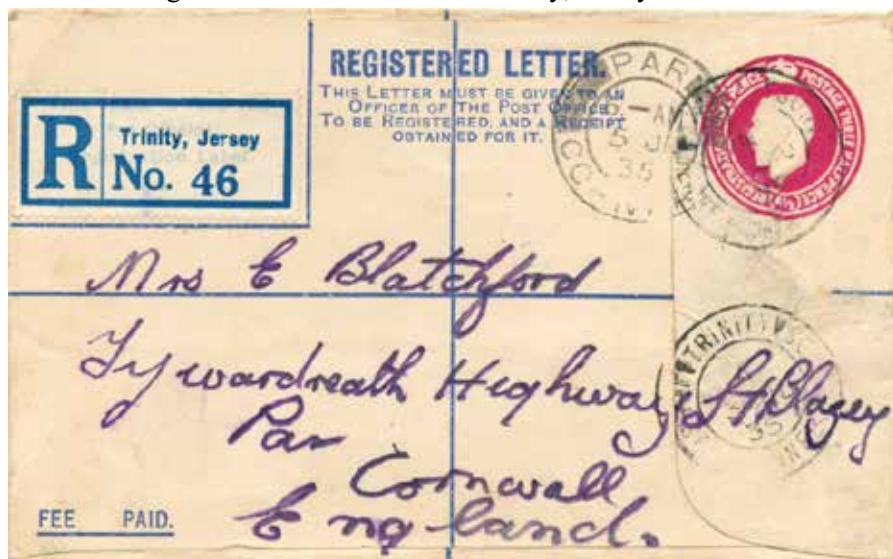 REGISTERED LETTER.
THIS LETTER MUST BE GIVEN TO AN
OFFICER OF THE POST OFFICE
TO BE REGISTERED, AND A RECEIPT
OBTAINED FOR IT.
PAR
5 J
35
POSTAGE THREE HALFPENCE
R
Trinity, Jersey
No. 46
Mrs E Blatchford
Tywardreath Highway St Blazey
Par
Cornwall
England.
TRINITY
35
FEE PAID.